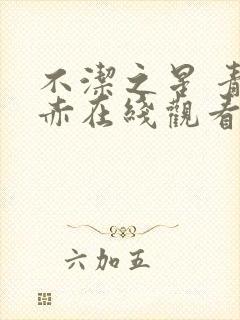 不潔之星 青
赤在綫觀看
六加五